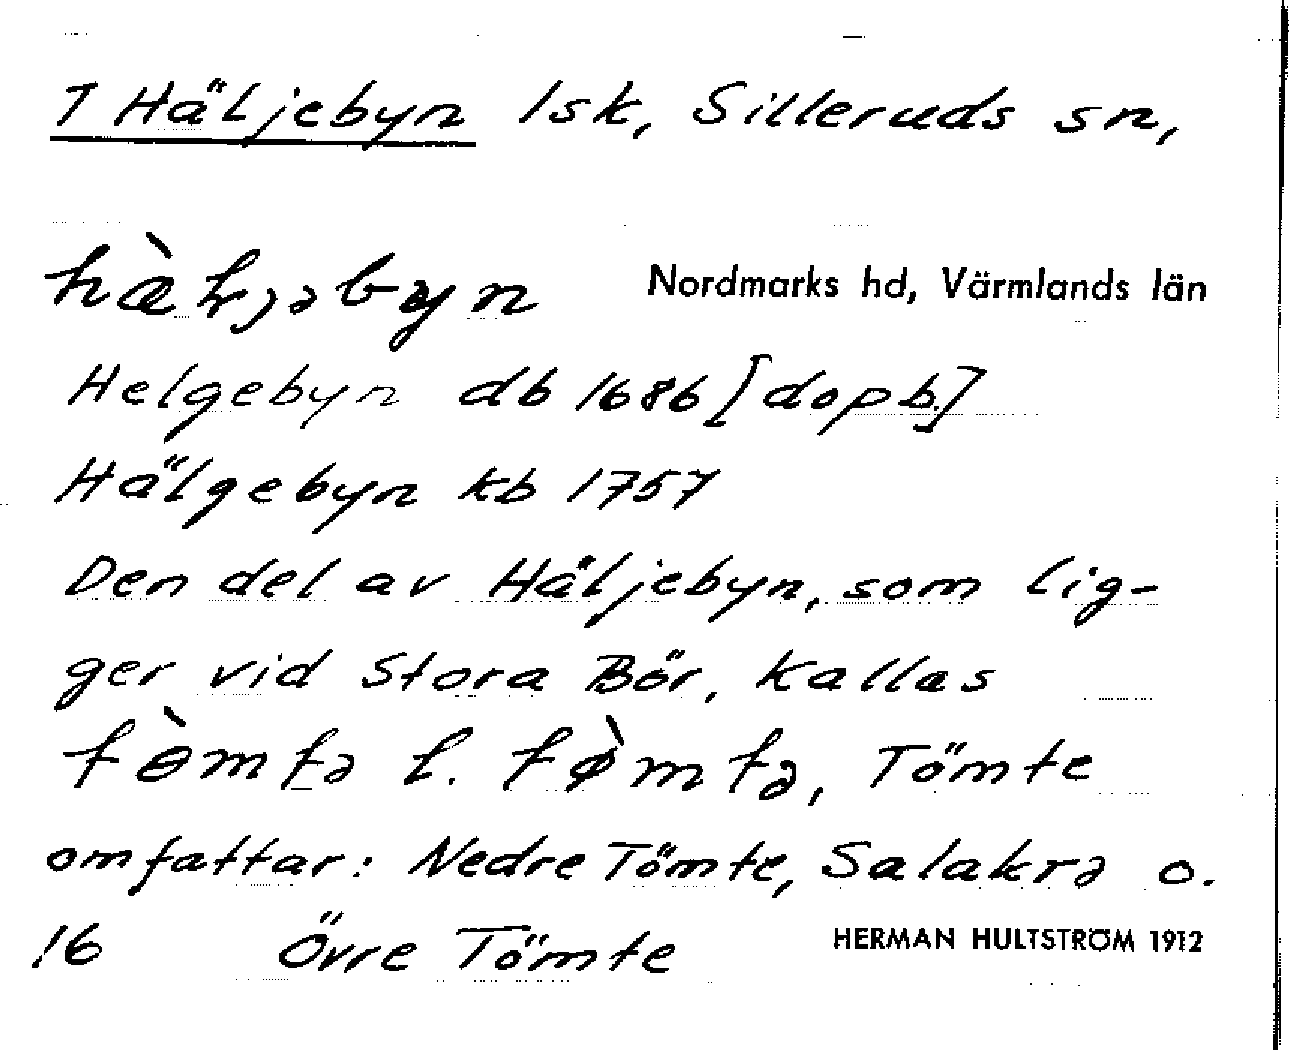 1 Häljebyn lsk, Silleruds sn,
hæ̀ɫjəbyn Nordmarks hd, Värmlands län
Helgebyn db 1686 [dopb.]
Hälgebyn kb 1757
Den del av Häljebyn, som lig-
ger vid Stora Bör, kallas
tɵ̀mtə l. tø̀mtə, Tömte
omfattar: Nedre Tömte, Salakrə o.
16 Övre Tömte HERMAN HULTSTRÖM 1912